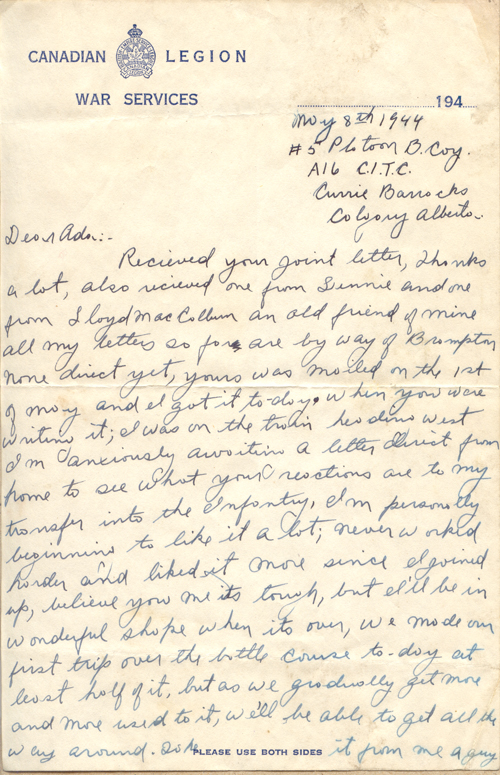 CANADIAN LEGION
WAR SERVICES
194
May 8th 1944
#5 Platoon B. Coy.
A16 C.I.T.C.
Currie Barracks
Calgary Alberta.
Dear Ada:-
Recieved your joint letter, thanks
a lot, also recieved one from Gennie and one
from Lloyd MacCallum an old friend of mine
all my letters so far are by way of Brampton
none direct yet, yours was mailed on the 1st
of may and I got it to-day. when you were
writing it; I was on the train heading west
I'm anxiously awaiting a letter direct from
home to see what your reactions are to my
transfer into the Infantry, I'm personally
beginning to like it a lot; never worked
harder and liked it more since I joined
up, believe you me its tough, but I'll be in
wonderful shape when its over, we made our
first trip over the battle course to-day at
least half of it, but as we gradually get more
and more used to it, we'll be able to get all the
way around. it from me a guy
PLEASE USE BOTH SIDES